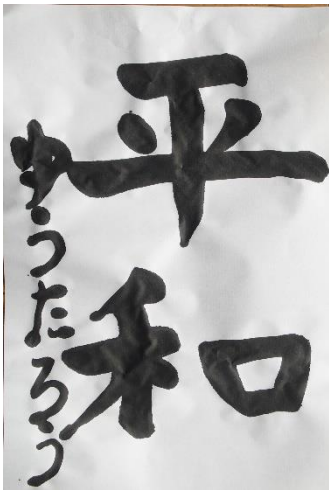 平和
ゆうたろう